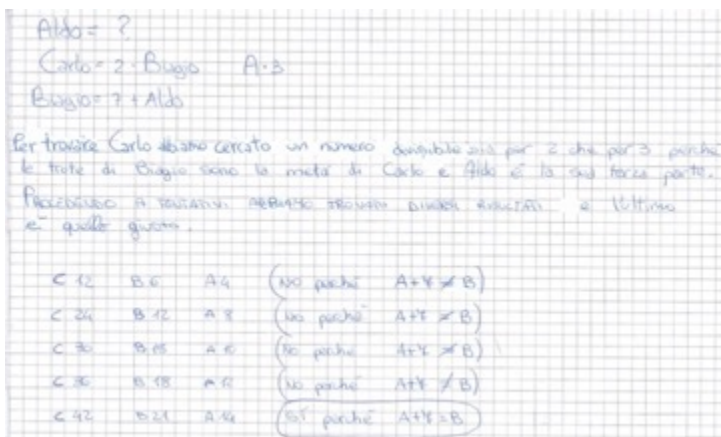 Aldo = ?
Carlo = 2 · Biagio A·3
Biagio = 7 + Aldo
Per trovare Carlo abbiamo cercato un numero divisibile sia per 2 che per 3 perché
le trote di Biagio sono la metà di Carlo e Aldo è la sua terza parte.
PROCEDENDO A TENTATIVI ABBIAMO TROVATO DIVERSI RISULTATI e l'ultimo
è quello giusto.
C 12 B 6 A 4 (No perché A+7 ≠ B)
C 24 B 12 A 8 (No perché A+7 ≠ B)
C 30 B 15 A 10 (No perché A+7 ≠ B)
C 36 B 18 A 12 (No perché A+7 ≠ B)
C 42 B 21 A 14 (SI perché A+7 = B)